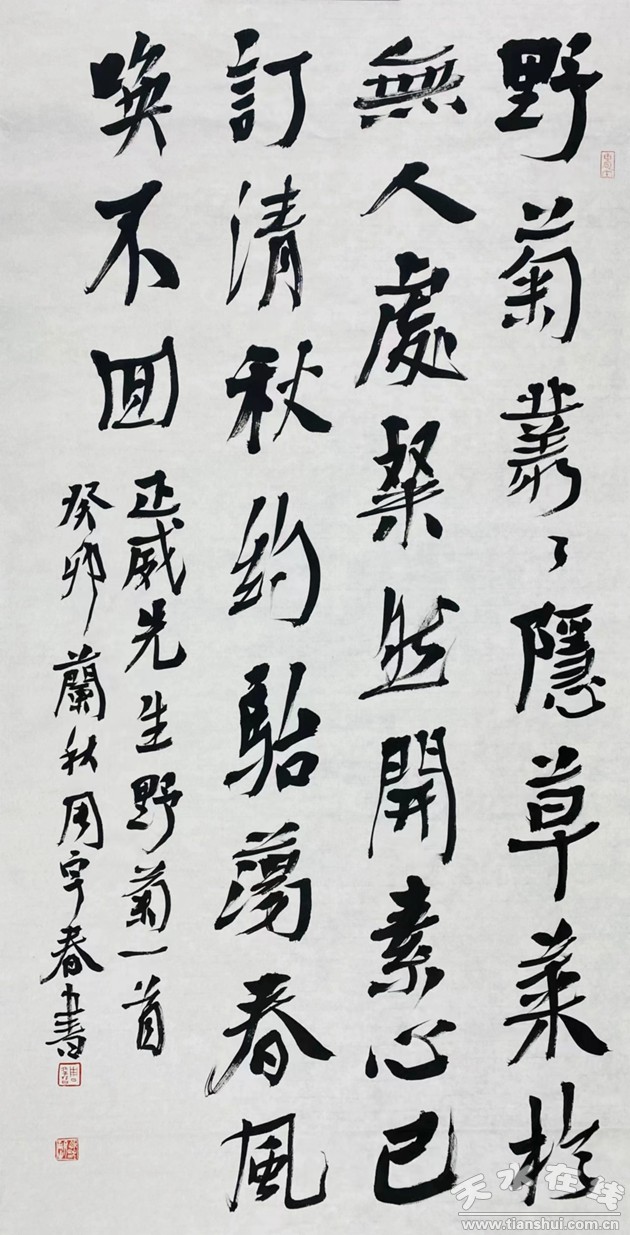 野菊叢々隱草萊於
無人處粲然開素心已
訂清秋約駘蕩春風
喚不回
正威先生野菊一首
癸卯蘭秋周宇春書
天水在线
www.tianshui.com.cn